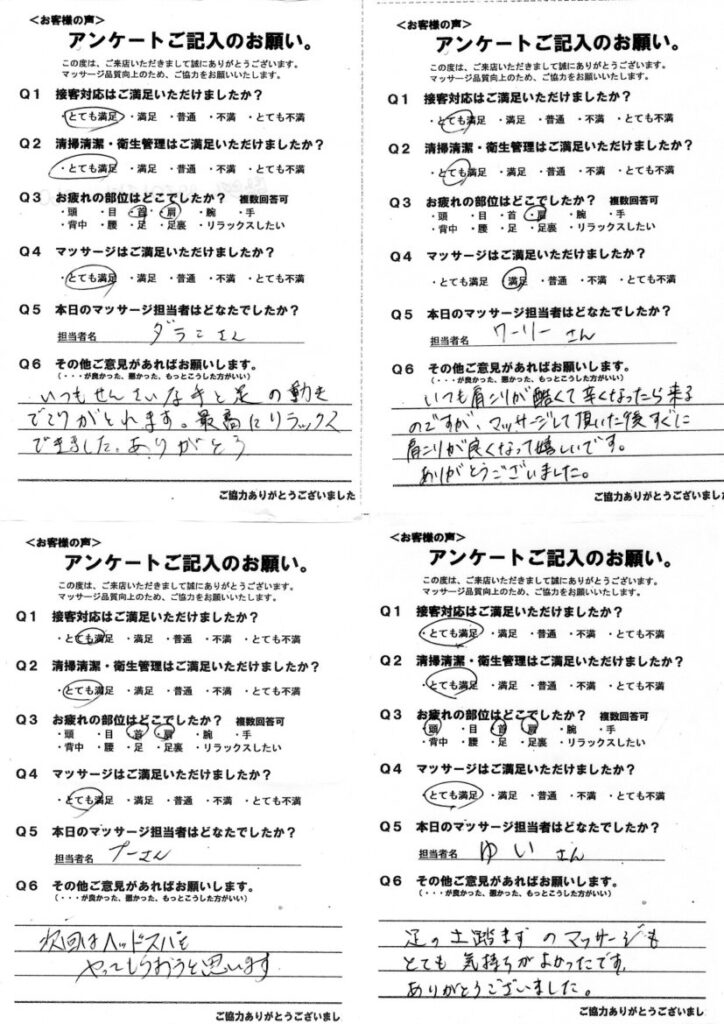 <お客様の声>
アンケートご記入のお願い。
この度は、ご来店いただきまして誠にありがとうございます。
マッサージ品質向上のため、ご協力をお願いいたします。
Q1 接客対応はご満足いただけましたか?
・とても満足 ・満足 ・普通 ・不満 ・とても不満
Q2 清掃清潔・衛生管理はご満足いただけましたか?
・とても満足 ・満足 ・普通 ・不満 ・とても不満
Q3 お疲れの部位はどこでしたか? 複数回答可
・頭 ・目 ・首 ・肩 ・腕 ・手
・背中 ・腰 ・足 ・足裏 ・リラックスしたい
Q4 マッサージはご満足いただけましたか?
・とても満足 ・満足 ・普通 ・不満 ・とても不満
Q5 本日のマッサージ担当者はどなたでしたか?
担当者名 ダラこさん
Q6 その他ご意見があればお願いします。
(・・・が良かった、悪かった、もっとこうした方がいい)
いつもせんさいな手と足の動き
でこりがとれます。最高にリラックス
できました。ありがとう
ご協力ありがとうございました
<お客様の声>
アンケートご記入のお願い。
この度は、ご来店いただきまして誠にありがとうございます。
マッサージ品質向上のため、ご協力をお願いいたします。
Q1 接客対応はご満足いただけましたか?
・とても満足 ・満足 ・普通 ・不満 ・とても不満
Q2 清掃清潔・衛生管理はご満足いただけましたか?
・とても満足 ・満足 ・普通 ・不満 ・とても不満
Q3 お疲れの部位はどこでしたか? 複数回答可
・頭 ・目 ・首 ・肩 ・腕 ・手
・背中 ・腰 ・足 ・足裏 ・リラックスしたい
Q4 マッサージはご満足いただけましたか?
・とても満足 ・満足 ・普通 ・不満 ・とても不満
Q5 本日のマッサージ担当者はどなたでしたか?
担当者名 ワーリーさん
Q6 その他ご意見があればお願いします。
(・・・が良かった、悪かった、もっとこうした方がいい)
いつも肩こりが酷くて辛くなったら来る
のですが、マッサージして頂いた後すぐに
肩こりが良くなって嬉しいです。
ありがとうございました。
ご協力ありがとうございまし
<お客様の声>
アンケートご記入のお願い。
この度は、ご来店いただきまして誠にありがとうございます。
マッサージ品質向上のため、ご協力をお願いいたします。
Q1 接客対応はご満足いただけましたか?
・とても満足 ・満足 ・普通 ・不満 ・とても不満
Q2 清掃清潔・衛生管理はご満足いただけましたか?
・とても満足 ・満足 ・普通 ・不満 ・とても不満
Q3 お疲れの部位はどこでしたか? 複数回答可
・頭 ・目 ・首 ・肩 ・腕 ・手
・背中 ・腰 ・足 ・足裏 ・リラックスしたい
Q4 マッサージはご満足いただけましたか?
・とても満足 ・満足 ・普通 ・不満 ・とても不満
Q5 本日のマッサージ担当者はどなたでしたか?
担当者名 プーさん
Q6 その他ご意見があればお願いします。
(・・・が良かった、悪かった、もっとこうした方がいい)
次回はヘッドスパを
やってもらおうと思います
ご協力ありがとうございまし
<お客様の声>
アンケートご記入のお願い。
この度は、ご来店いただきまして誠にありがとうございます。
マッサージ品質向上のため、ご協力をお願いいたします。
Q1 接客対応はご満足いただけましたか?
・とても満足 ・満足 ・普通 ・不満 ・とても不満
Q2 清掃清潔・衛生管理はご満足いただけましたか?
・とても満足 ・満足 ・普通 ・不満 ・とても不満
Q3 お疲れの部位はどこでしたか? 複数回答可
・頭 ・目 ・首 ・肩 ・腕 ・手
・背中 ・腰 ・足 ・足裏 ・リラックスしたい
Q4 マッサージはご満足いただけましたか?
・とても満足 ・満足 ・普通 ・不満 ・とても不満
Q5 本日のマッサージ担当者はどなたでしたか?
担当者名 ゆいさん
Q6 その他ご意見があればお願いします。
(・・・が良かった、悪かった、もっとこうした方がいい)
足の土踏まずのマッサージも
とても気持ちがよかったです。
ありがとうございました。
ご協力ありがとうございまし